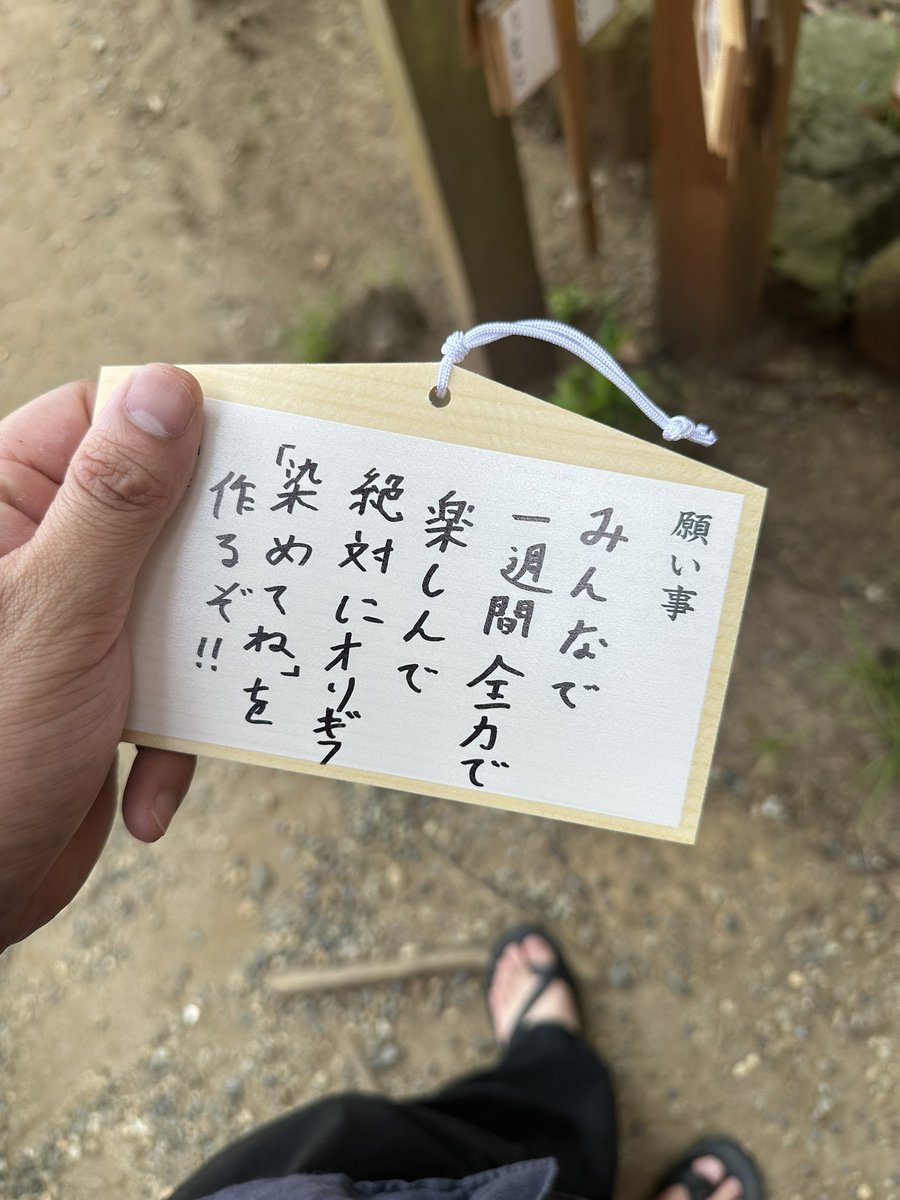 願い事
みんなで
一週間全力で
楽しんで
絶対にオリギフ
「染めてね」を
作るぞ!!